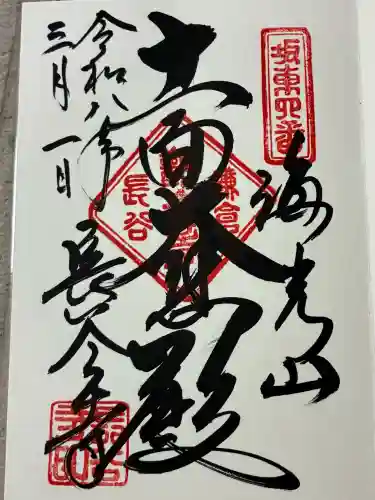 坂東四番
海光山
十一面大悲殿
鎌倉
長谷
長谷寺
令和八年
三月一日